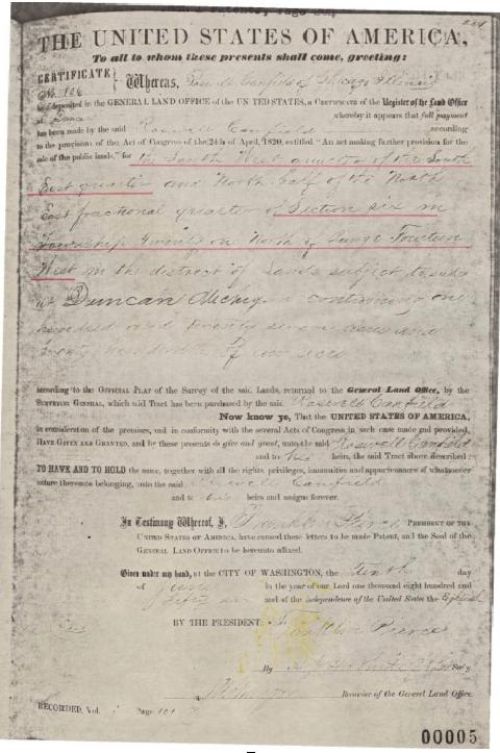 254
THE UNITED STATES OF AMERICA,
To all to whom these presents shall come, greeting:
CERTIFICATE
No. 106
Whereas, Roswell Canfield of
deposited in the GENERAL LAND OFFICE of the UNITED STATES, a CERTIFICATE of the Register of the Land Office
at Duncan whereby it appears that full payment
has been made by the said Roswell Canfield according
to the provisions of the Act of Congress of the 24th of April, 1820, entitled "An act making further provision for the
sale of the public lands," for the South West quarter of the South
East quarter and North half of the North
East fractional quarter of Section six in
Township twenty on North of Range Fourteen
West in the district of Lands subject to sale
at Duncan containing one
hundred and twenty seven acres and
hundredths of an acre
according to the OFFICIAL PLAT of the Survey of the said Lands, returned to the General Land Office, by the
SURVEYOR GENERAL, which said Tract has been purchased by the said Roswell Canfield
Now know ye, That the UNITED STATES OF AMERICA,
in consideration of the premises, and in conformity with the several Acts of Congress in such case made and provided,
HAVE GIVEN AND GRANTED, and by these presents do give and grant, unto the said Roswell Canfield
and to his heirs, the said Tract above described:
TO HAVE AND TO HOLD the same, together with all the rights, privileges, immunities and appurtenances of whatsoever
nature thereunto belonging, unto the said Roswell Canfield
and to his heirs and assigns forever.
In Testimony Whereof, I, Franklin Pierce PRESIDENT OF THE
UNITED STATES OF AMERICA, have caused these letters to be made Patent, and the Seal of the
GENERAL LAND OFFICE to be hereunto affixed.
Given under my hand, at the CITY OF WASHINGTON, the tenth day
of June in the year of our Lord one thousand eight hundred and
fifty six and of the independence of the United States the Eightieth
BY THE PRESIDENT: Franklin Pierce
By Sec'y
Recorder of the General Land Office.
RECORDED, Vol. Page
00005